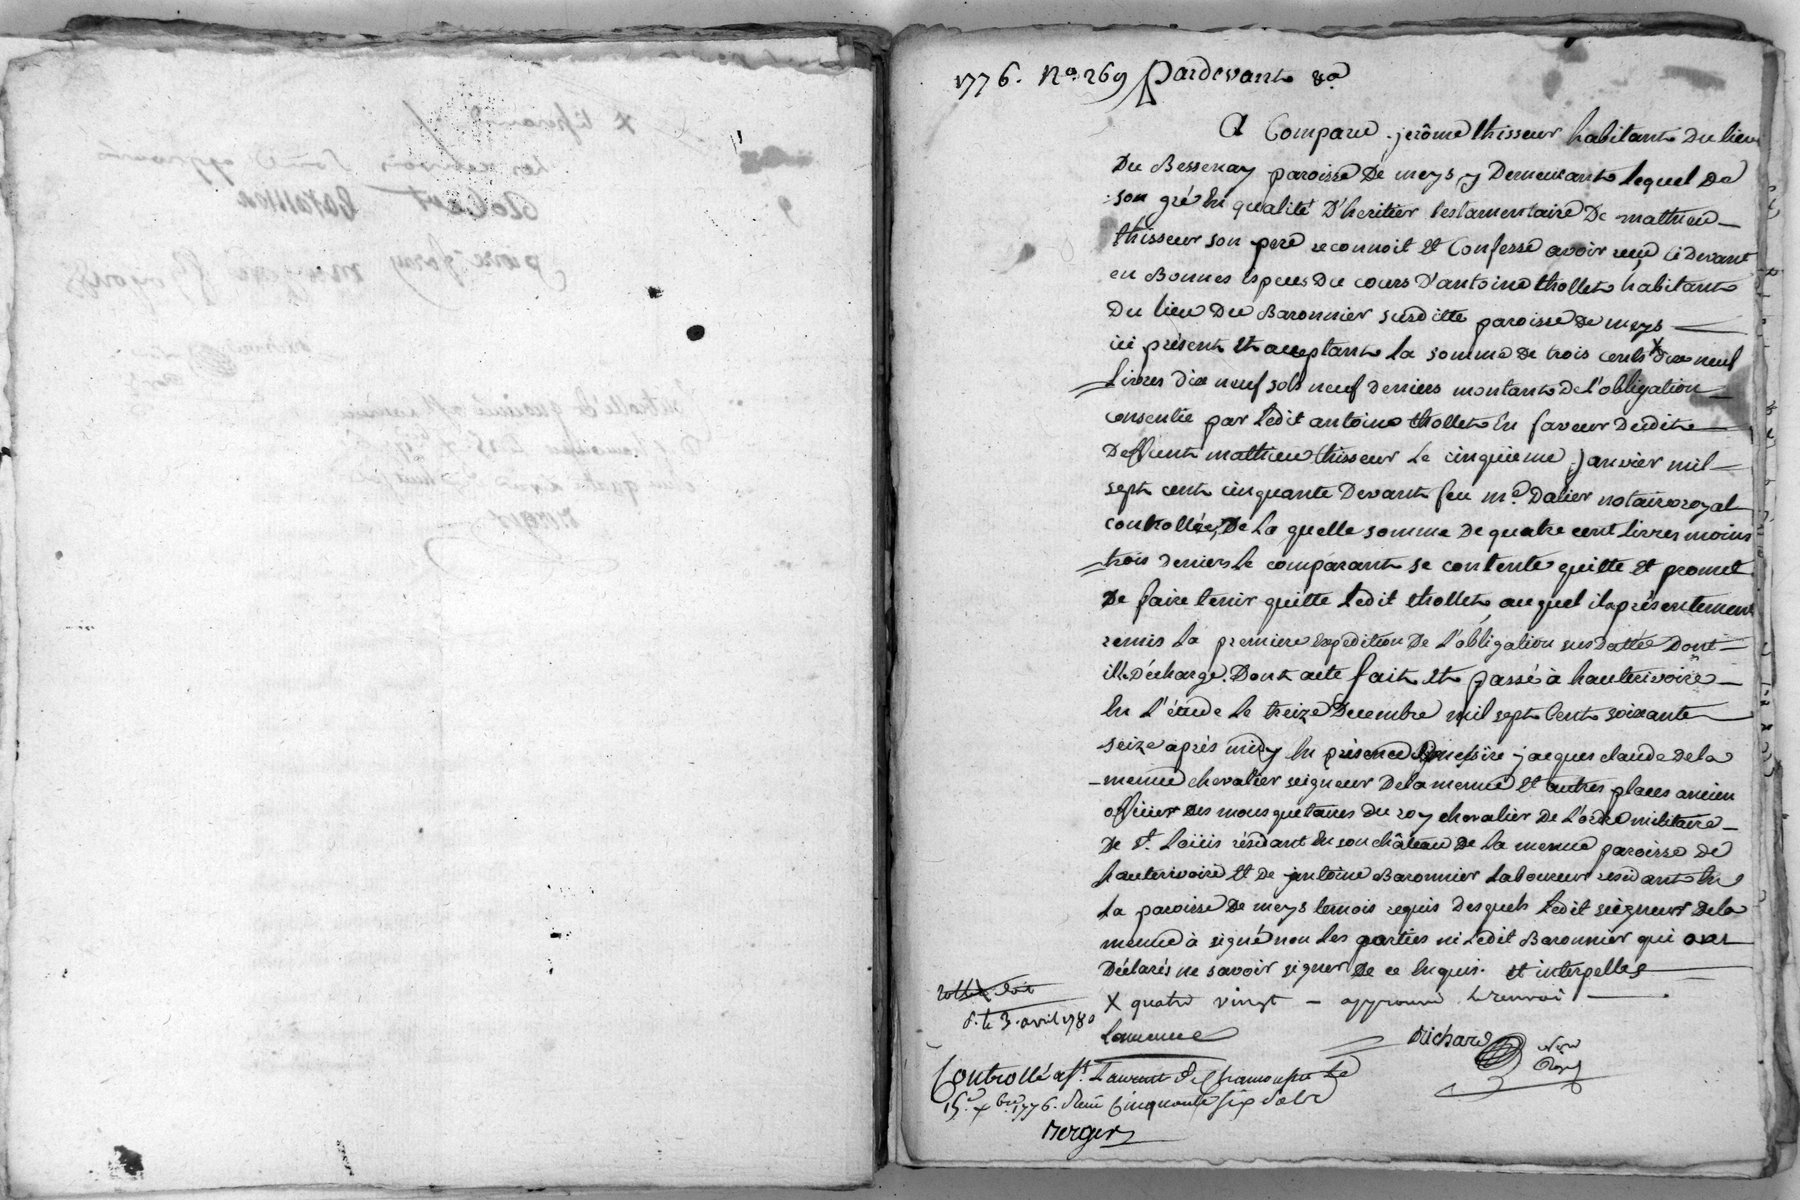 1776. No. 269 Pardevant &a
A Comparu jerôme thisseur habitant du lieu
Du Bessenay paroisse de meys y Demeurant lequel de
son gré En qualité D'heritier testamentaire De mathieu
thisseur son pere reconnoit Et Confesse avoir reçu ci devant
en Bonnes Especes du cours D'antoine thollet habitant
Du lieu Du Baronnier susditte paroisse de meys
ici présent Et acceptant La somme de trois cents X dix neuf
Livres dix neuf sols neuf deniers montant de L'obligation
consentie par Ledit antoine thollet En faveur dudit
Deffunt mathieu thisseur Le cinquieme Janvier mil
sept cent cinquante Devant feu me. Dalier notaire royal
controllée, De La quelle somme de quatre cent Livres moins
trois deniers Le comparant se contente quitte Et promet
De faire tenir quitte Ledit thollet au quel il a présentement
remis La premiere Expedition De L'obligation susdattée Dont
il Décharge. Dont acte fait Et passé à hauterivoire
En L'étude Le treize Decembre mil sept Cent soixante
seize après midy En présence De messire jacques claude Dela
menue chevalier seigneur Delamenue Et autres places ancien
officier des mousquetaires du roy chevalier De L'ordre militaire
De St. Loüis résidant En son château De La menue paroisse de
hauterivoire Et De antoine Baronnier Laboureur residant En
La paroisse De meys temois requis Desquels Ledit seigneur Dela
menue à signé non Les parties ni Ledit Baronnier qui ont
Déclarés ne savoir signer De ce Enquis. et interpellés
X quatre vingt - approuvé Le renvoi
doit
d. le 3. avril 1780
Lamenue
Richard
Controllé a St. Laurent de Chamousset Le
15. Xbre. 1776. Recu Cinquante six sols
Berger